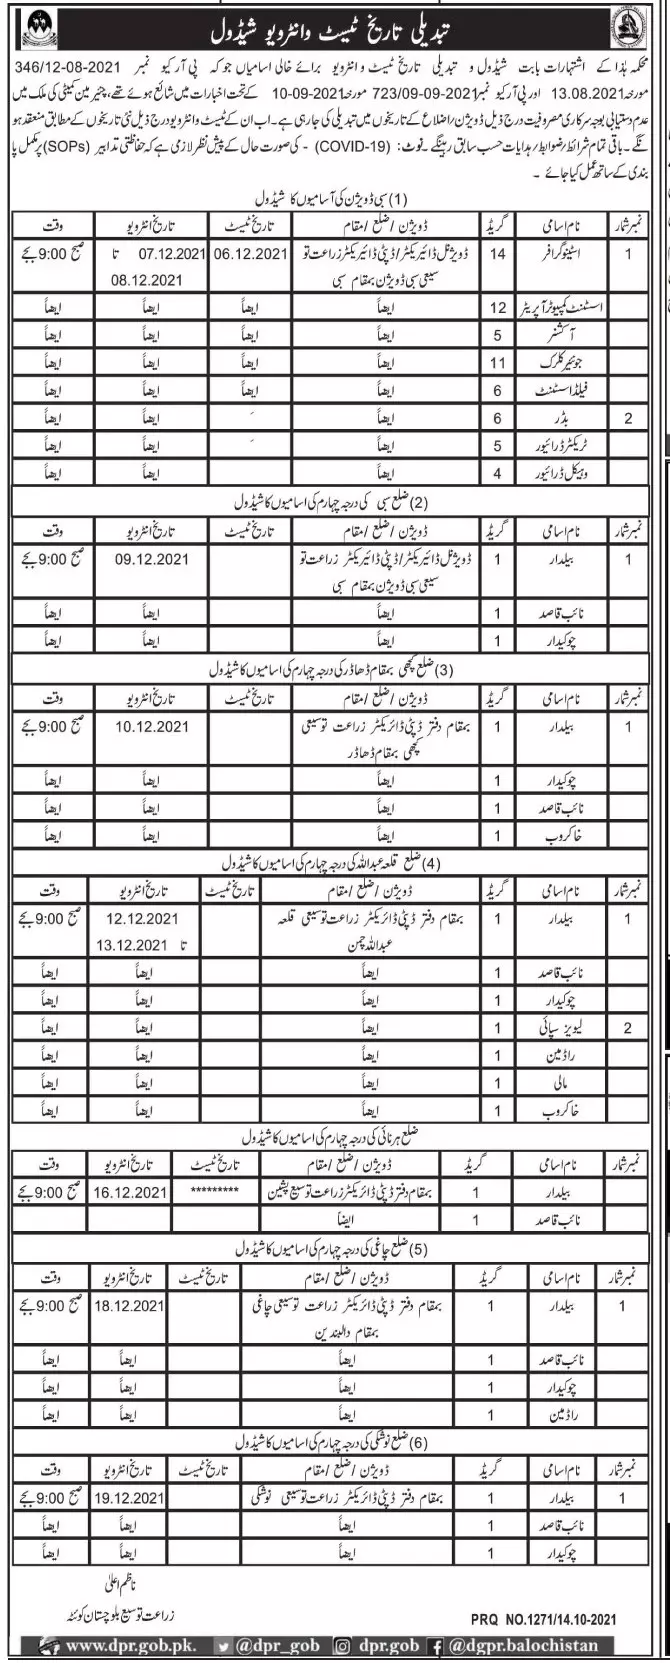 تبدیلی تاریخ ٹیسٹ وانٹرویو شیڈول
محکمہ ہذا کے اشتہارات بابت شیڈول و تبدیلی تاریخ ٹیسٹ و انٹرویو برائے خالی اسامیاں جو کہ پی آر کیو نمبر 346/12-08-2021
مورخہ 13.08.2021 اور پی آر کیو نمبر 723/09-09-2021 مورخہ 10-09-2021 کے تحت اخبارات میں شائع ہوئے تھے، چیئرمین کمیٹی کی ملک میں
عدم دستیابی بوجہ سرکاری مصروفیت درج ذیل ڈویژن/اضلاع کے تاریخوں میں تبدیلی کی جارہی ہے۔ اب ان کے ٹیسٹ وانٹرویو درج ذیل نئی تاریخوں کے مطابق منعقد ہو
نگے۔ باقی تمام شرائط/ضوابط/ہدایات حسب سابق رہینگے۔ فوٹ: (COVID-19) - کی صورت حال کے پیش نظر لازمی ہے کہ حفاظتی تدابیر (SOPs) پر مکمل پا
بندی کے ساتھ عمل کیا جائے۔
(1) سبی ڈویژن کی آسامیوں کا شیڈول
نمبر شمار نام اسامی گریڈ ڈویژن/ضلع/مقام تاریخ ٹیسٹ تاریخ انٹرویو وقت
1 اسٹینوگرافر 14 ڈویژنل ڈائیریکٹر/ڈپٹی ڈائیریکٹر زراعت تو 06.12.2021 07.12.2021 تا صبح 9:00 بجے
سیعی سبی ڈویژن بمقام سبی 08.12.2021
اسسٹنٹ کمپیوٹر آپریٹر 12 ایضاً ایضاً ایضاً ایضاً
آکشنر 5 ایضاً ایضاً ایضاً ایضاً
جونیئر کلرک 11 ایضاً ایضاً ایضاً ایضاً
فیلڈ اسسٹنٹ 6 ایضاً ایضاً ایضاً ایضاً
2 بڈر 6 ایضاً ایضاً ایضاً
ٹریکٹر ڈرائیور 5 ایضاً ایضاً ایضاً
وہیکل ڈرائیور 4 ایضاً ایضاً ایضاً
(2) ضلع سبی کی درجہ چہارم کی اسامیوں کا شیڈول
نمبر شمار نام اسامی گریڈ ڈویژن/ضلع/مقام تاریخ ٹیسٹ تاریخ انٹرویو وقت
1 بیلدار 1 ڈویژنل ڈائیریکٹر/ڈپٹی ڈائیریکٹر زراعت تو 09.12.2021 صبح 9:00 بجے
سیعی سبی ڈویژن بمقام سبی
نائب قاصد 1 ایضاً ایضاً ایضاً
چوکیدار 1 ایضاً ایضاً ایضاً
(3) ضلع کچھی بمقام ڈھاڈر کی درجہ چہارم کی اسامیوں کا شیڈول
نمبر شمار نام اسامی گریڈ ڈویژن/ضلع/مقام تاریخ ٹیسٹ تاریخ انٹرویو وقت
1 بیلدار 1 بمقام دفتر ڈپٹی ڈائریکٹر زراعت توسیعی 10.12.2021 صبح 9:00 بجے
کچھی بمقام ڈھاڈر
چوکیدار 1 ایضاً ایضاً ایضاً
نائب قاصد 1 ایضاً ایضاً ایضاً
خاکروب 1 ایضاً ایضاً ایضاً
(4) ضلع قلعہ عبداللہ کی درجہ چہارم کی اسامیوں کا شیڈول
نمبر شمار نام اسامی گریڈ ڈویژن/ضلع/مقام تاریخ ٹیسٹ تاریخ انٹرویو وقت
1 بیلدار 1 بمقام دفتر ڈپٹی ڈائریکٹر زراعت توسیعی قلعہ 12.12.2021 صبح 9:00 بجے
عبداللہ چمن تا 13.12.2021
نائب قاصد 1 ایضاً ایضاً ایضاً
چوکیدار 1 ایضاً ایضاً ایضاً
2 لیویز سپائی 1 ایضاً ایضاً ایضاً
راڈمین 1 ایضاً ایضاً ایضاً
مالی 1 ایضاً ایضاً ایضاً
خاکروب 1 ایضاً ایضاً ایضاً
ضلع ہرنائی کی درجہ چہارم کی اسامیوں کا شیڈول
نمبر شمار نام اسامی گریڈ ڈویژن/ضلع/مقام تاریخ ٹیسٹ تاریخ انٹرویو وقت
بیلدار 1 بمقام دفتر ڈپٹی ڈائریکٹر زراعت توسیع پشین ********* 16.12.2021 صبح 9:00 بجے
نائب قاصد 1 ایضاً
(5) ضلع چاغی کی درجہ چہارم کی اسامیوں کا شیڈول
نمبر شمار نام اسامی گریڈ ڈویژن/ضلع/مقام تاریخ ٹیسٹ تاریخ انٹرویو وقت
1 بیلدار 1 بمقام دفتر ڈپٹی ڈائریکٹر زراعت توسیعی چاغی 18.12.2021 صبح 9:00 بجے
بمقام دالبندین
نائب قاصد 1 ایضاً ایضاً ایضاً
چوکیدار 1 ایضاً ایضاً ایضاً
راڈمین 1 ایضاً ایضاً ایضاً
(6) ضلع نوشکی کی درجہ چہارم کی اسامیوں کا شیڈول
نمبر شمار نام اسامی گریڈ ڈویژن/ضلع/مقام تاریخ ٹیسٹ تاریخ انٹرویو وقت
1 بیلدار 1 بمقام دفتر ڈپٹی ڈائریکٹر زراعت توسیعی نوشکی 19.12.2021 صبح 9:00 بجے
نائب قاصد 1 ایضاً ایضاً ایضاً
چوکیدار 1 ایضاً ایضاً ایضاً
ناظم اعلیٰ
زراعت توسیع بلوچستان کوئٹہ
PRQ NO.1271/14.10-2021
www.dpr.gob.pk. @dpr_gob dpr.gob @dgpr.balochistan